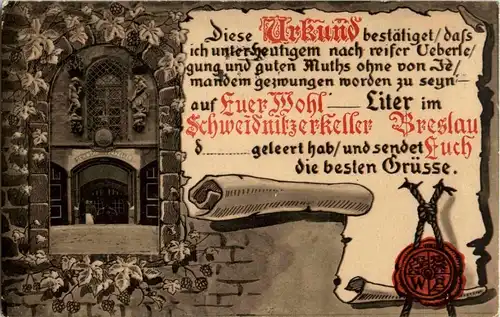 Diese Urkund bestätiget/daß
ich unter heutigem nach reifer Ueberle/
gung und guten Muths ohne von Je/
mandem gezwungen worden zu seyn
auf Euer Wohl ____ Liter im
Schweidnitzerkeller Breslau
d......... geleert hab/und sendet Euch
die besten Grüsse.
W